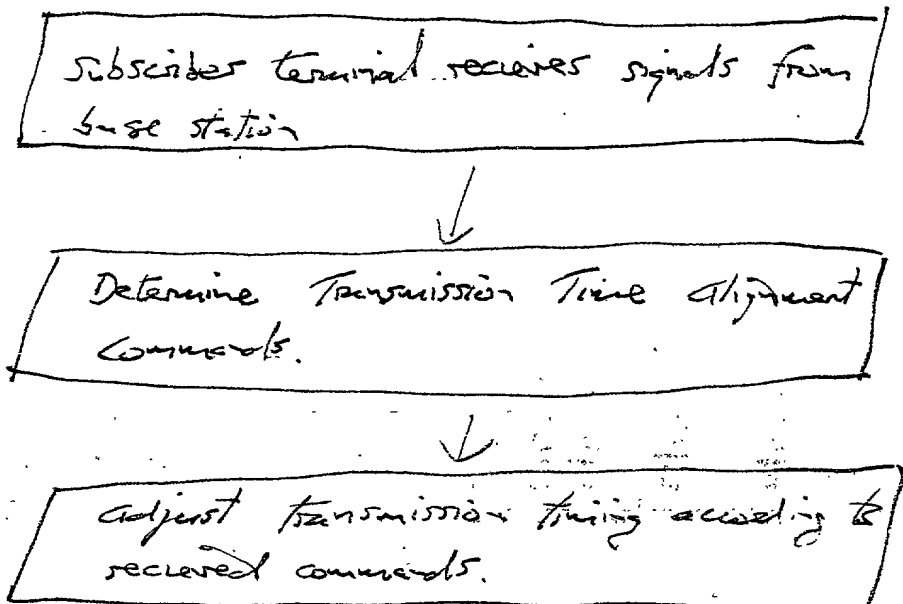 Subscriber terminal recieves signals from
base station
Determine Transmission Time Alignment
Commands.
Adjust transmission timing according to
recieved commands.